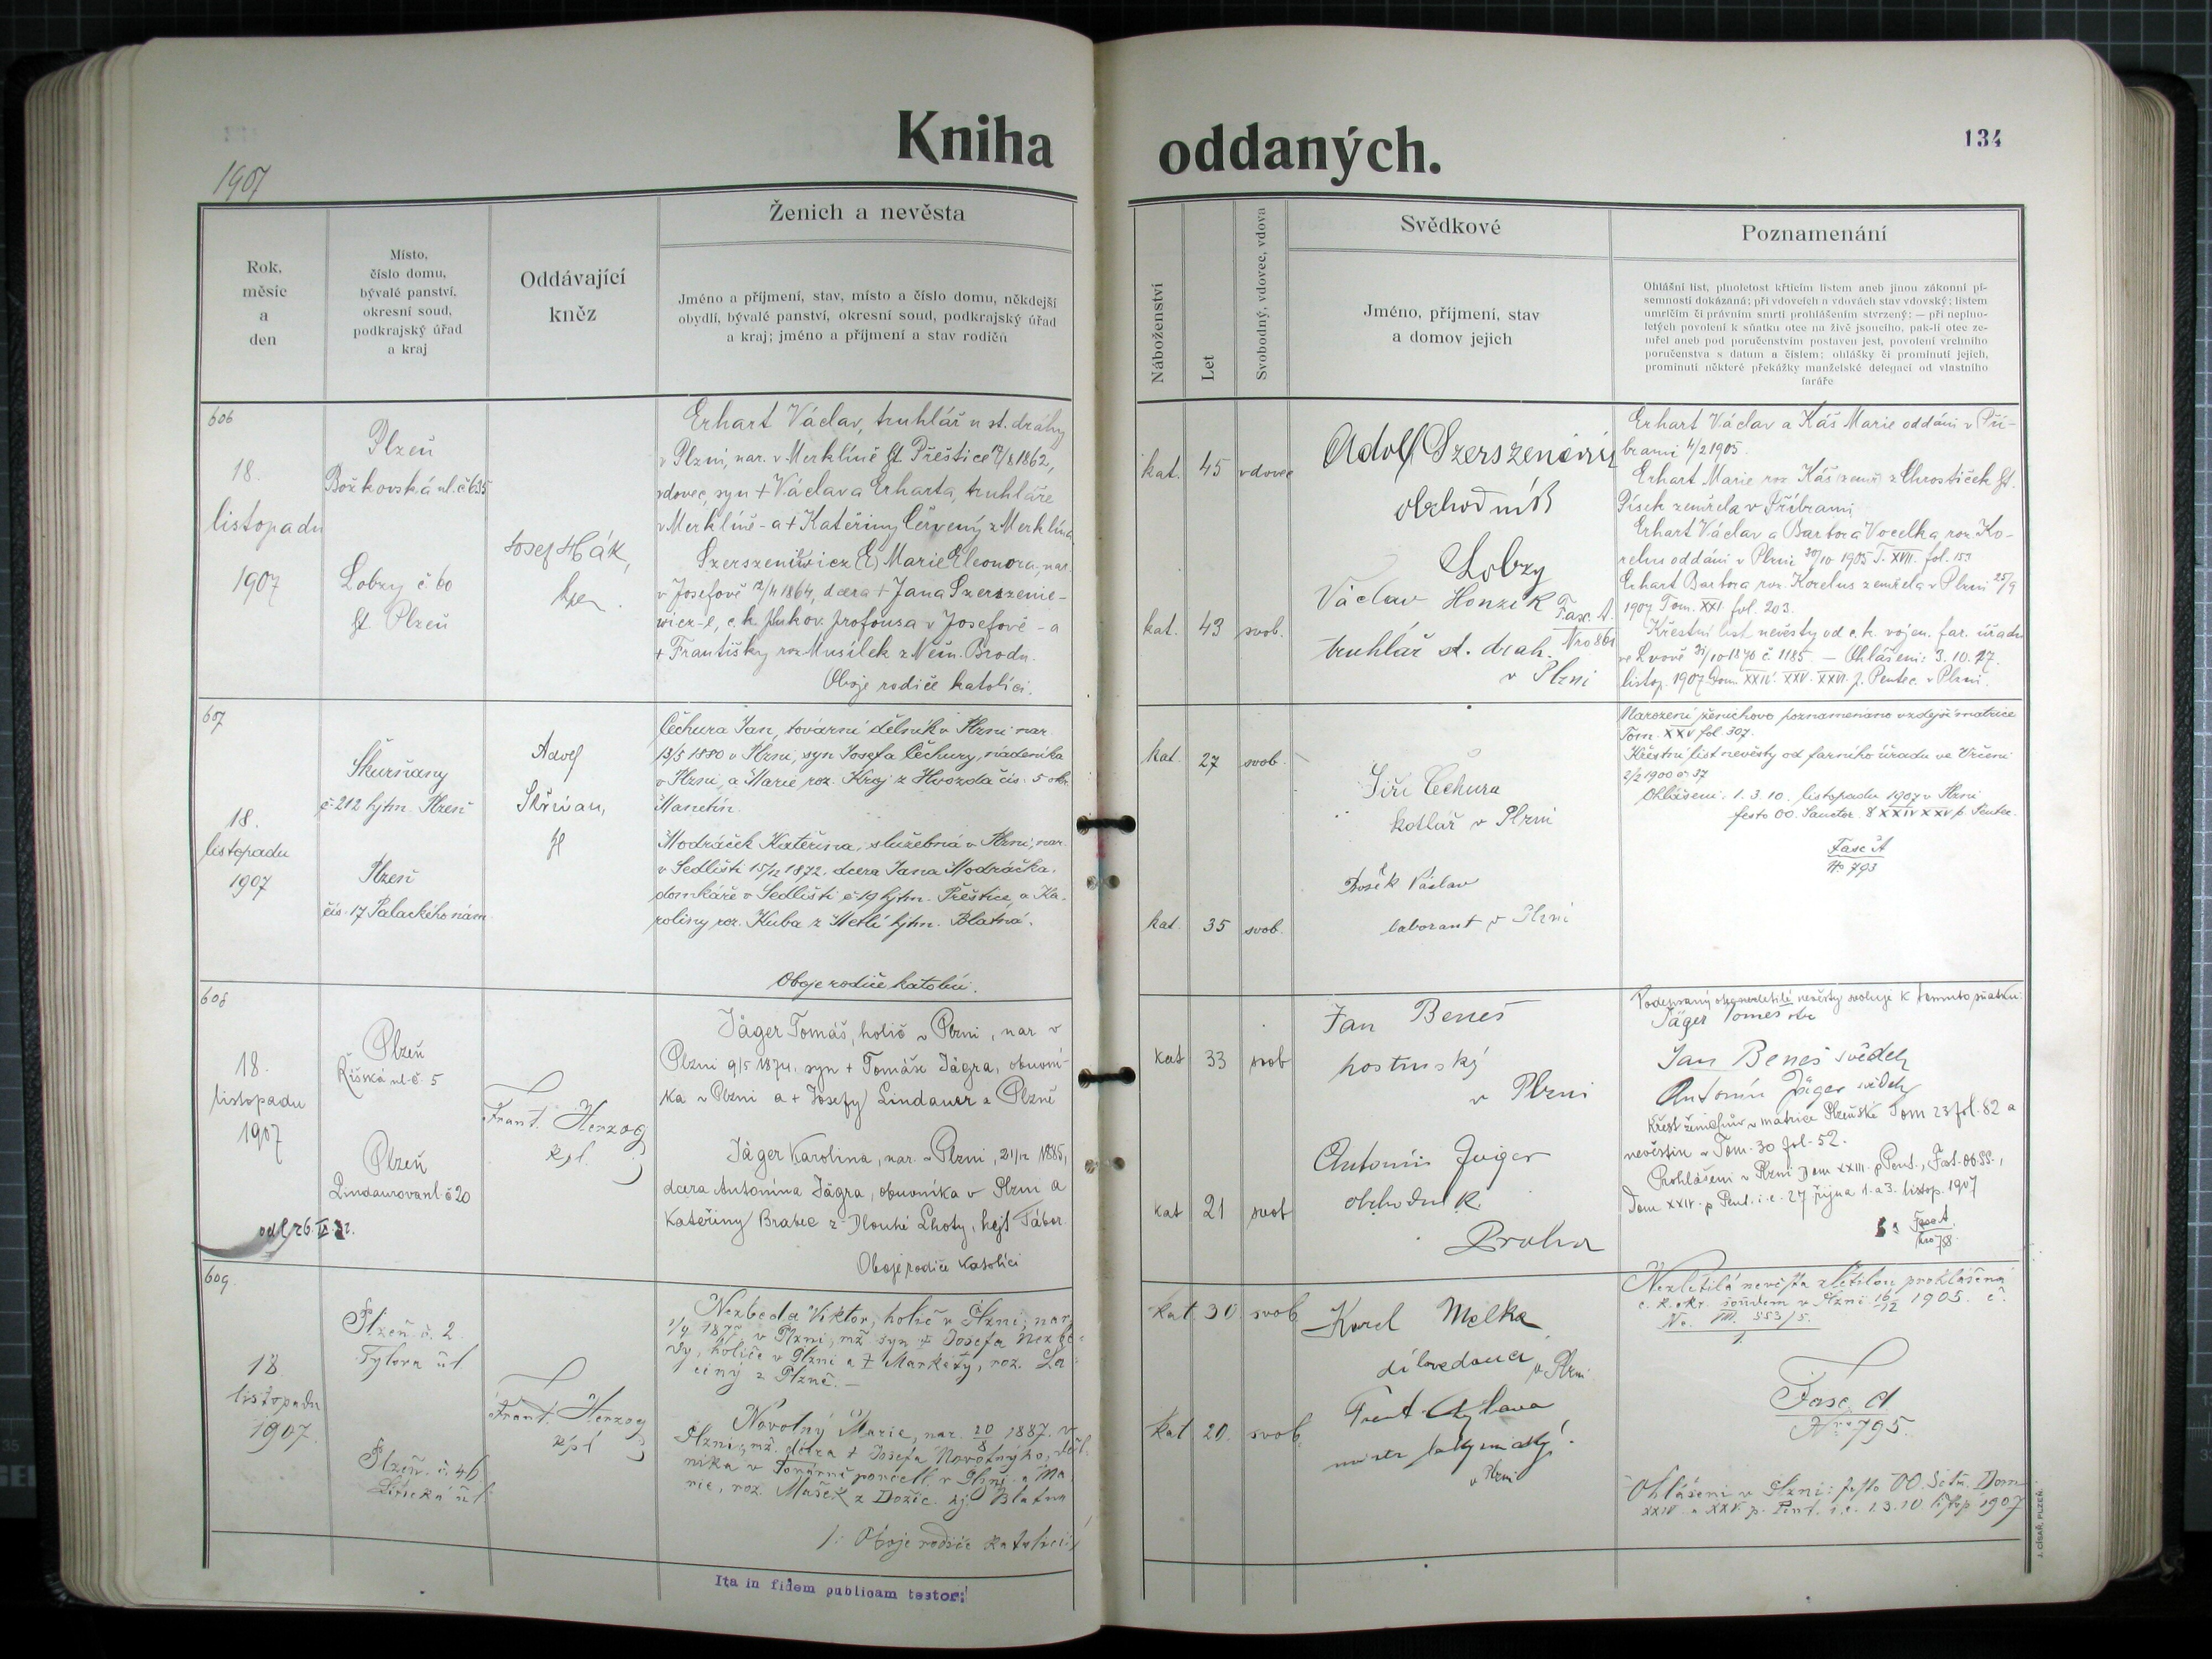 Kniha oddaných.
134
1907
Rok,
měsíc
a
den
Místo,
číslo domu,
bývalé panství,
okresní soud,
podkrajský úřad
a kraj
Oddávající
kněz
Ženich a nevěsta
Jméno a příjmení, stav, místo a číslo domu, někdejší
obydlí, bývalé panství, okresní soud, podkrajský úřad
a kraj; jméno a příjmení a stav rodičů
Náboženství
Let
Svobodný, vdovec, vdova
Svědkové
Jméno, příjmení, stav
a domov jejich
Poznamenání
Ohlášní list, plnoletost křticím listem aneb jinou zákonní pí-
semností dokázaná; při vdovcích a vdovách stav vdovský; listem
umrlčím či právním smrti prohlášením stvrzený; — při neplno-
letých povolení k sňatku otce na živě jsoucího, pak-li otec ze-
mřel aneb pod poručenstvím postaven jest, povolení vrchního
poručenstva s datum a číslem; ohlášky či prominutí jejich,
prominutí některé překážky manželské delegací od vlastního
faráře
606
18.
listopadu
1907
Plzeň
Božkovská ul. č 635
Lobzy č 60
Plzeň
Josef Hák,
Erhart Václav, truhlář u st. dráhy
v Plzni, nar. v Merklíně Přeštice 1862,
vdovec, syn + Václava Erharta, truhláře
v Merklíně - a + Kateřiny Červený z Merklína
Szerszeniewicz (E) Marie Eleonora, nar.
v Josefově 12/11 1864, dcera + Jana Szerszenie-
wicz-e, c. k. pluk. profousa v Josefově - a
+ Františky roz. Musílek z Něm. Brodu.
Oboje rodiče katolíci.
kat. 45 vdovec
kat. 43 svob.
Adolf
obchodník
Lobzy
Václav Honzík
truhlář st. drah.
v Plzni
Fasc. A.
Nro 861
Erhart Václav a Káš Marie oddáni v Pří-
brami 4/2 1905.
Erhart Marie roz. Káš z Chrastiček
Písek zemřela v Příbrami
Erhart Václav a Barbora Vocelka roz. Ko-
relus oddáni v Plzni 30/10 1905 T. XVII. fol. 153
Erhart Barbora roz. Korelus zemřela v Plzni 25/9
1907 Tom. XXI. fol. 203.
Křestní list nevěsty od c. k. vojen. far. úřadu
ve Lvově 31/10 1870 č. 1185. — Ohlášeni: 3. 10. 17.
listop. 1907 Dom. XXIV. XXV. XXVI. p. Pentec. v Plzni.
607
18.
listopadu
1907
Škurňany
č. 212 hjtm. Plzeň
Plzeň
čís. 17 Palackého nám
Adolf
Čechura Jan, tovární dělník v Plzni nar.
13/5 1880 v Plzni, syn Josefa Čechury, nádeníka
v Plzni, a Marie roz. Kraj z Hvozda čís. 5 okr.
Manetín.
Modráček Kateřina, služebná v Plzni, nar.
v Sedlišti 15/12 1872, dcera Jana Modráčka,
domkáře v Sedlišti č. 19 hjtm. Přeštice, a Ka-
roliny roz. Kuba z Metlí hjtm. Blatná.
Oboje rodiče katolíci.
kat. 27 svob.
kat. 35 svob.
Jiří Čechura
kotlář v Plzni
Václav
laborant v Plzni
Narození ženichovo poznamenáno v zdejší matrice
Tom. XXV fol. 307.
Křestní list nevěsty od farního úřadu ve Vrčeni
2/2 1900 č. 37
Ohlášeni. 1. 3. 10. listopadu 1907 v Plzni
festo OO. Sanctor. & XXIV XXV p. Pentec.
Fasc A
No 793
608
18.
listopadu
1907
Plzeň
Říšská ul. č. 5
Plzeň
Lindaurova ul. č 20
Frant. Herzog
kpl.
Jäger Tomáš, holič v Plzni, nar. v
Plzni 9/5 1874, syn + Tomáše Jägra, obuvní-
ka v Plzni a + Josefy Lindauer z Plzně
Jäger Karolina, nar. v Plzni, 21/12 1885,
dcera Antonína Jägra, obuvníka v Plzni a
Kateřiny Brabec z Dlouhé Lhoty, hejt Tábor.
Oboje rodiče katolíci
kat 33 svob
kat 21 svob
Jan Beneš
hostinský
v Plzni
Antonín Jäger
obchodník
Praha
Podepsaný otec nezletilé nevěsty svoluje k tomuto sňatku:
Jan Beneš svědek
Antonín Jäger svědek
Křest ženichův v matrice Plzeňské Tom 23 fol. 82 a
nevěstin v Tom. 30 fol. 52.
Prohlášeni v Plzni Dom XXIII. p Pent., Fest. OO. SS.,
Dom XXIV. p Pent. i. e. 27 října 1. a 3. listop. 1907
Fasc A.
Nro 788
609.
18.
listopadu
1907.
Plzeň č. 2
Tylova ul
Plzeň č. 46
Frant. Herzog
kpl
Nezbeda Viktor, holič v Plzni, nar.
v Plzni, mž. syn + Josefa Nezbe-
dy, holiče v Plzni a + Markéty, roz.
z Plzně. —
Novotný Marie, nar. 20/8 1887. v
Plzni, mž. dcera + Josefa Novotnýho, děl-
níka v Továrně porcell. v Plzni a Ma-
rie, roz. Mašek z Dožic. hj Blatna
/: Oboje rodiče katolíci :/
kat 30 svob.
kat 20. svob.
Karel Melka
dílovedoucí v Plzni
v Plzni
Nezletilá nevěsta zletilou prohlášena
c. k. okr. soudem v Plzni 16/12 1905. č.
Nc. VIII. 553/5.
Fasc A
Nro 795.
Ohlášeni v Plzni: festo OO. Sctr. Dom
XXIV. a XXV. p. Pent. i. e. 1. 3. 10 listop 1907
Ita in fidem publicam testor:
J. CÍSAŘ, PLZEŇ.